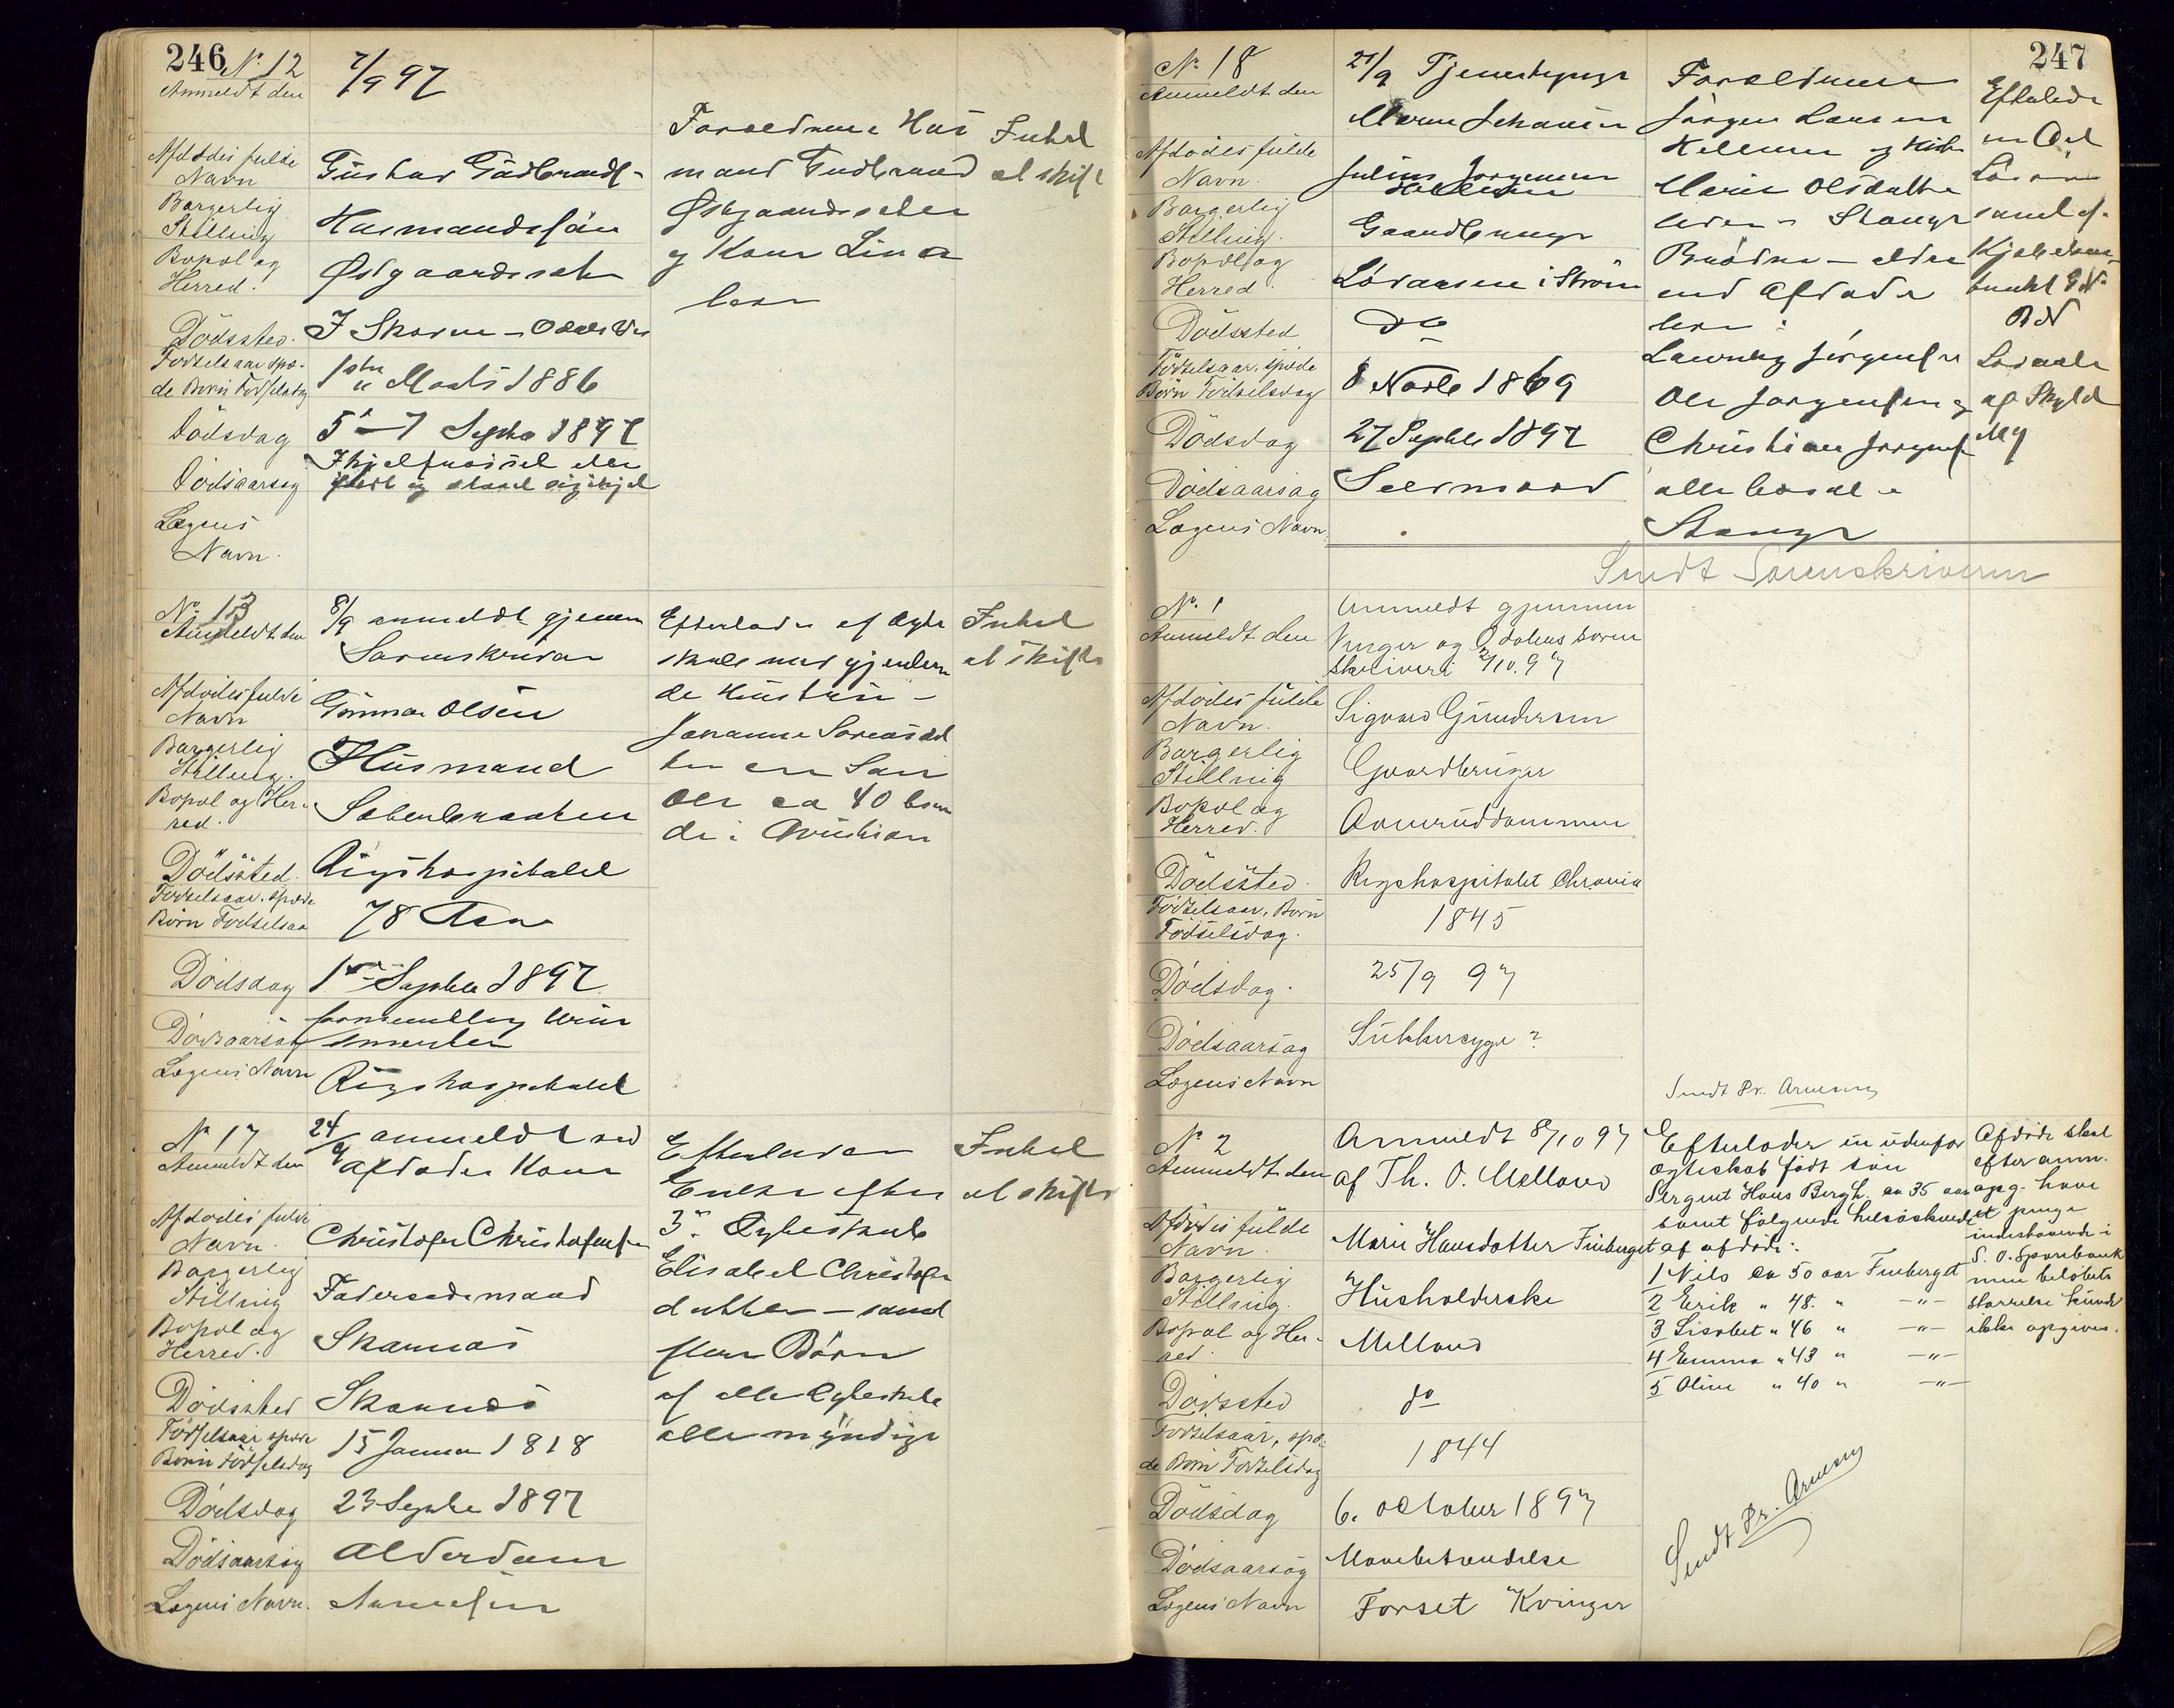 246
No 12
Anmeldt den
7/9 97
Afdødes fulde
Navn
Gustav Gudbrands-
Borgerlig
Stilling
Husmandssøn
Bopæl og
Herred.
Østgaardssæter
Dødssted.
I Skoven
Fødselsaar spæ-
de Børns Fødselsdag
1ste Marts 1886
Dødsdag
5 - 7 Septbr 1897
Dødsaarsag
Ihjelfrosset eller
og slaaet sig ihjel
Lægens
Navn.
Forældrene Hus
mand Gudbrand
Østgaardssæter
og Kone Lina
lever
Intet
at skifte
No 13
Anmeldt den
8/9 anmeldt gjennem
Sorenskriver
Afdødes fulde
Navn
Gunnar Olsen
Borgerlig
Stilling.
Husmand
Bopæl og Her-
red.
Sæterbraaten
Dødssted.
Rigshospitalet
Fødselsaar. spæde
Børn Fødselsaa
78 Aar
Dødsdag
1ste Septbr 1897
Dødsaarsag
Lægens Navn
Rigshospitalet
Efterlader af Ægte
skab med gjenleven
de Hustru -
Johanne Larsdat
ter en Søn
Ole ca 40 boen
de i Christian
Intet
at skifte
No 17
Anmeldt den
24/9 anmeldt ved
Afdødes Kone
Afdødes fulde
Navn.
Christofer Christofersen
Borgerlig
Stilling
Føderaadsmand
Bopæl og
Herred.
Skarnæs
Dødssted
Skarnæs
Fødselsaar spæde
Børns Fødselsdag
15 Januar 1818
Dødsdag
23 Septbr 1897
Dødsaarsag
Alderdom
Lægens Navn.
Arnesen
Efterlader
Enke efter
3die Ægteskab
Elisabet Christofer
datter - samt
flere Børn
af alle Ægteskab
alle myndige
Intet
at skifte
247
No 18
Anmeldt den
27/9 Tjenestepige
Maren Johansen
Afdødes fulde
Navn.
Julius Jørgensen
Borgerlig
Stilling.
Gaardbruger
Bopæl og
Herred.
Løvaasen i Strøm
Dødssted
do
Fødselsaar. spæde
Børn Fødselsdag
8 Novbr 1869
Dødsdag
27 Septbr 1897
Dødsaarsag
Selvmord
Lægens Navn
Forældrene
Jørgen Larsen
og
Marie Olsdatter
lever i Stange
Brødre - eldre
end Afdøde
lever:
Jørgensen
Ole Jørgensen og
Christian Jørgensen
alle bosat i
Stange
Efterlader
Løvaasen
samt
af Skyld
Sendt Sorenskriveren
No. 1
Anmeldt den
Anmeldt gjennem
Vinger og Odalens soren
skriveri 2/10.97
Afdødes fulde
Navn.
Sigvard Gundersen
Borgerlig
Stilling
Gaardbruger
Bopæl og
Herred.
Dødssted.
Rigshospitalet Chrania
Fødselsaar, Børn
Fødselsdag.
1845
Dødsdag.
25/9 97
Dødsaarsag
Sukkersyge?
Lægens Navn
Sendt Pr. Arnesen
No 2
Anmeldt den
Anmeldt 8/10 97
af Th. O. Melland
Afdødes fulde
Navn.
Marie Hansdatter Finberget
Borgerlig
Stilling.
Husholderske
Bopæl og Her-
red.
Melland
Dødssted
do
Fødselsaar, spæ-
de Børn Fødselsdag
1844
Dødsdag
6. october 1897
Dødsaarsag
Mavebetændelse
Lægens Navn
Forset Kvinger
Efterlader en udenfor
ægteskab født søn
Sergent Hans Bergh. ca 35 aar
samt følgende helsøskende
af afdøde:
1 Nils ca 50 aar Finberget
2 Erik " 48. " -"-
3 Lisabet " 46 " -"-
4 Emma " 43 " -"-
5 Oline " 40 " -"-
Afdøde skal
efter anm.
opg. have
et penge
indestaaende i
S. O. Sparebank
men beløbets
størrelse kunde
ikke opgives.
Sendt Pr. Arnesen